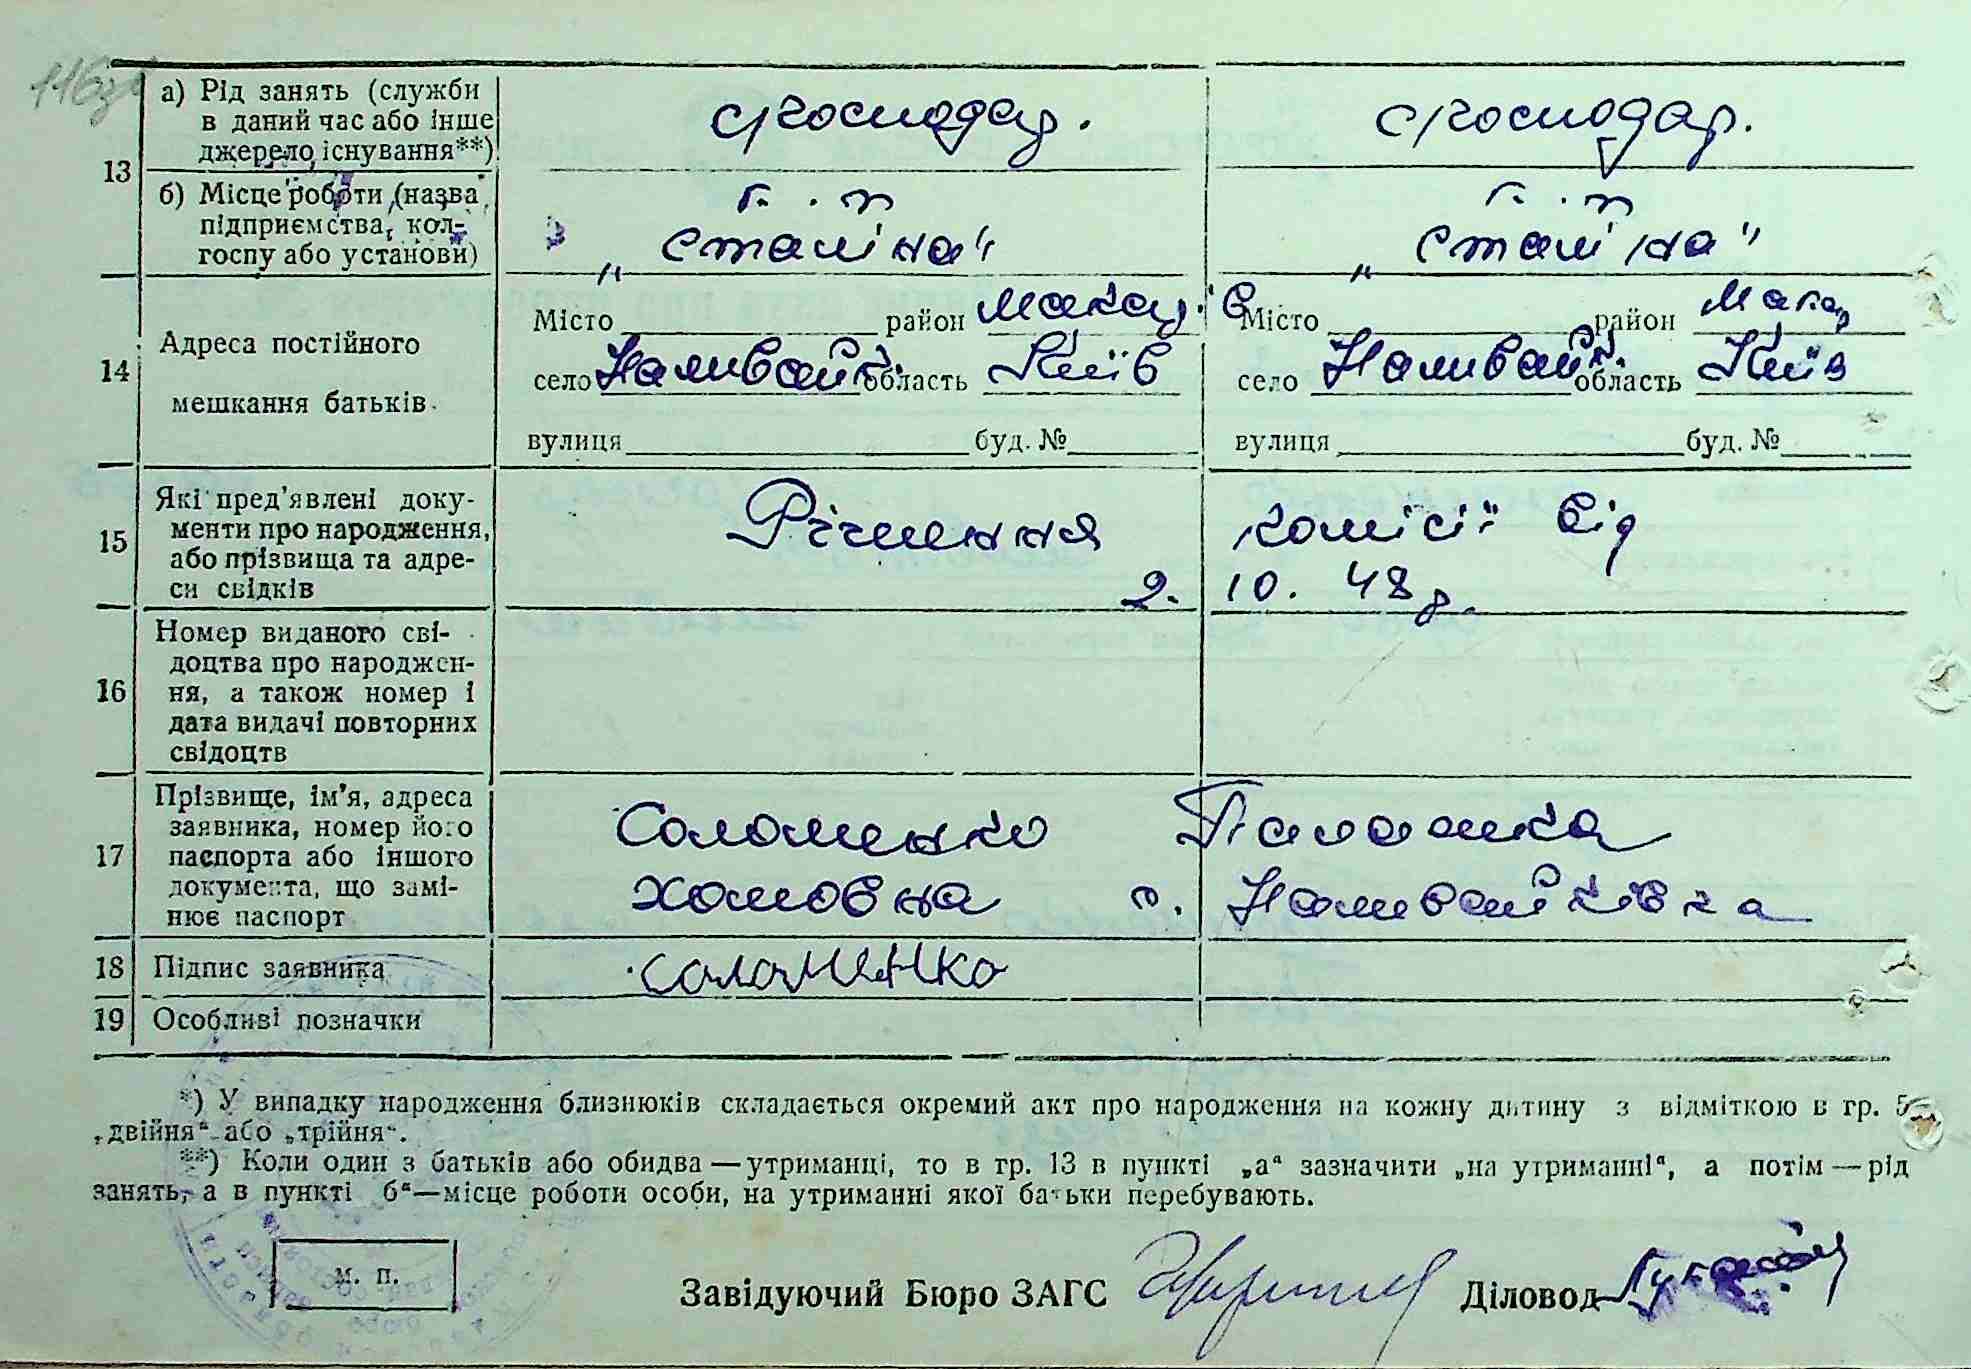 13
а) Рід занять (служби
в даний час або інше
джерело існування**)
с/господар.
с/господар.
б) Місце роботи (назва
підприємства, кол-
госпу або установи)
„Сталіна"
„Сталіна"
14
Адреса постійного
мешкання батьків
Місто район Макар.
село Наливайк. область Київ
вулиця буд. №
Місто район Макар
село Наливайк. область Київ
вулиця буд. №
15
Які пред'явлені доку-
менти про народження,
або прізвища та адре-
си свідків
Рішення комісії від
2. 10. 48 р.
16
Номер виданого сві-
доцтва про народжен-
ня, а також номер і
дата видачі повторних
свідоцтв
17
Прізвище, ім'я, адреса
заявника, номер його
паспорта або іншого
документа, що замі-
нює паспорт
Соломенко Палашка
Хомовна с. Наливайківка
18
Підпис заявника
Соломенко
19
Особливі позначки
*) У випадку народження близнюків складається окремий акт про народження на кожну дитину з відміткою в гр. 5
„двійня“ або „трійня“.
**) Коли один з батьків або обидва — утриманці, то в гр. 13 в пункті „а“ зазначити „на утриманні“, а потім — рід
занять, а в пункті б“ — місце роботи особи, на утриманні якої батьки перебувають.
м. п.
Завідуючий Бюро ЗАГС Діловод